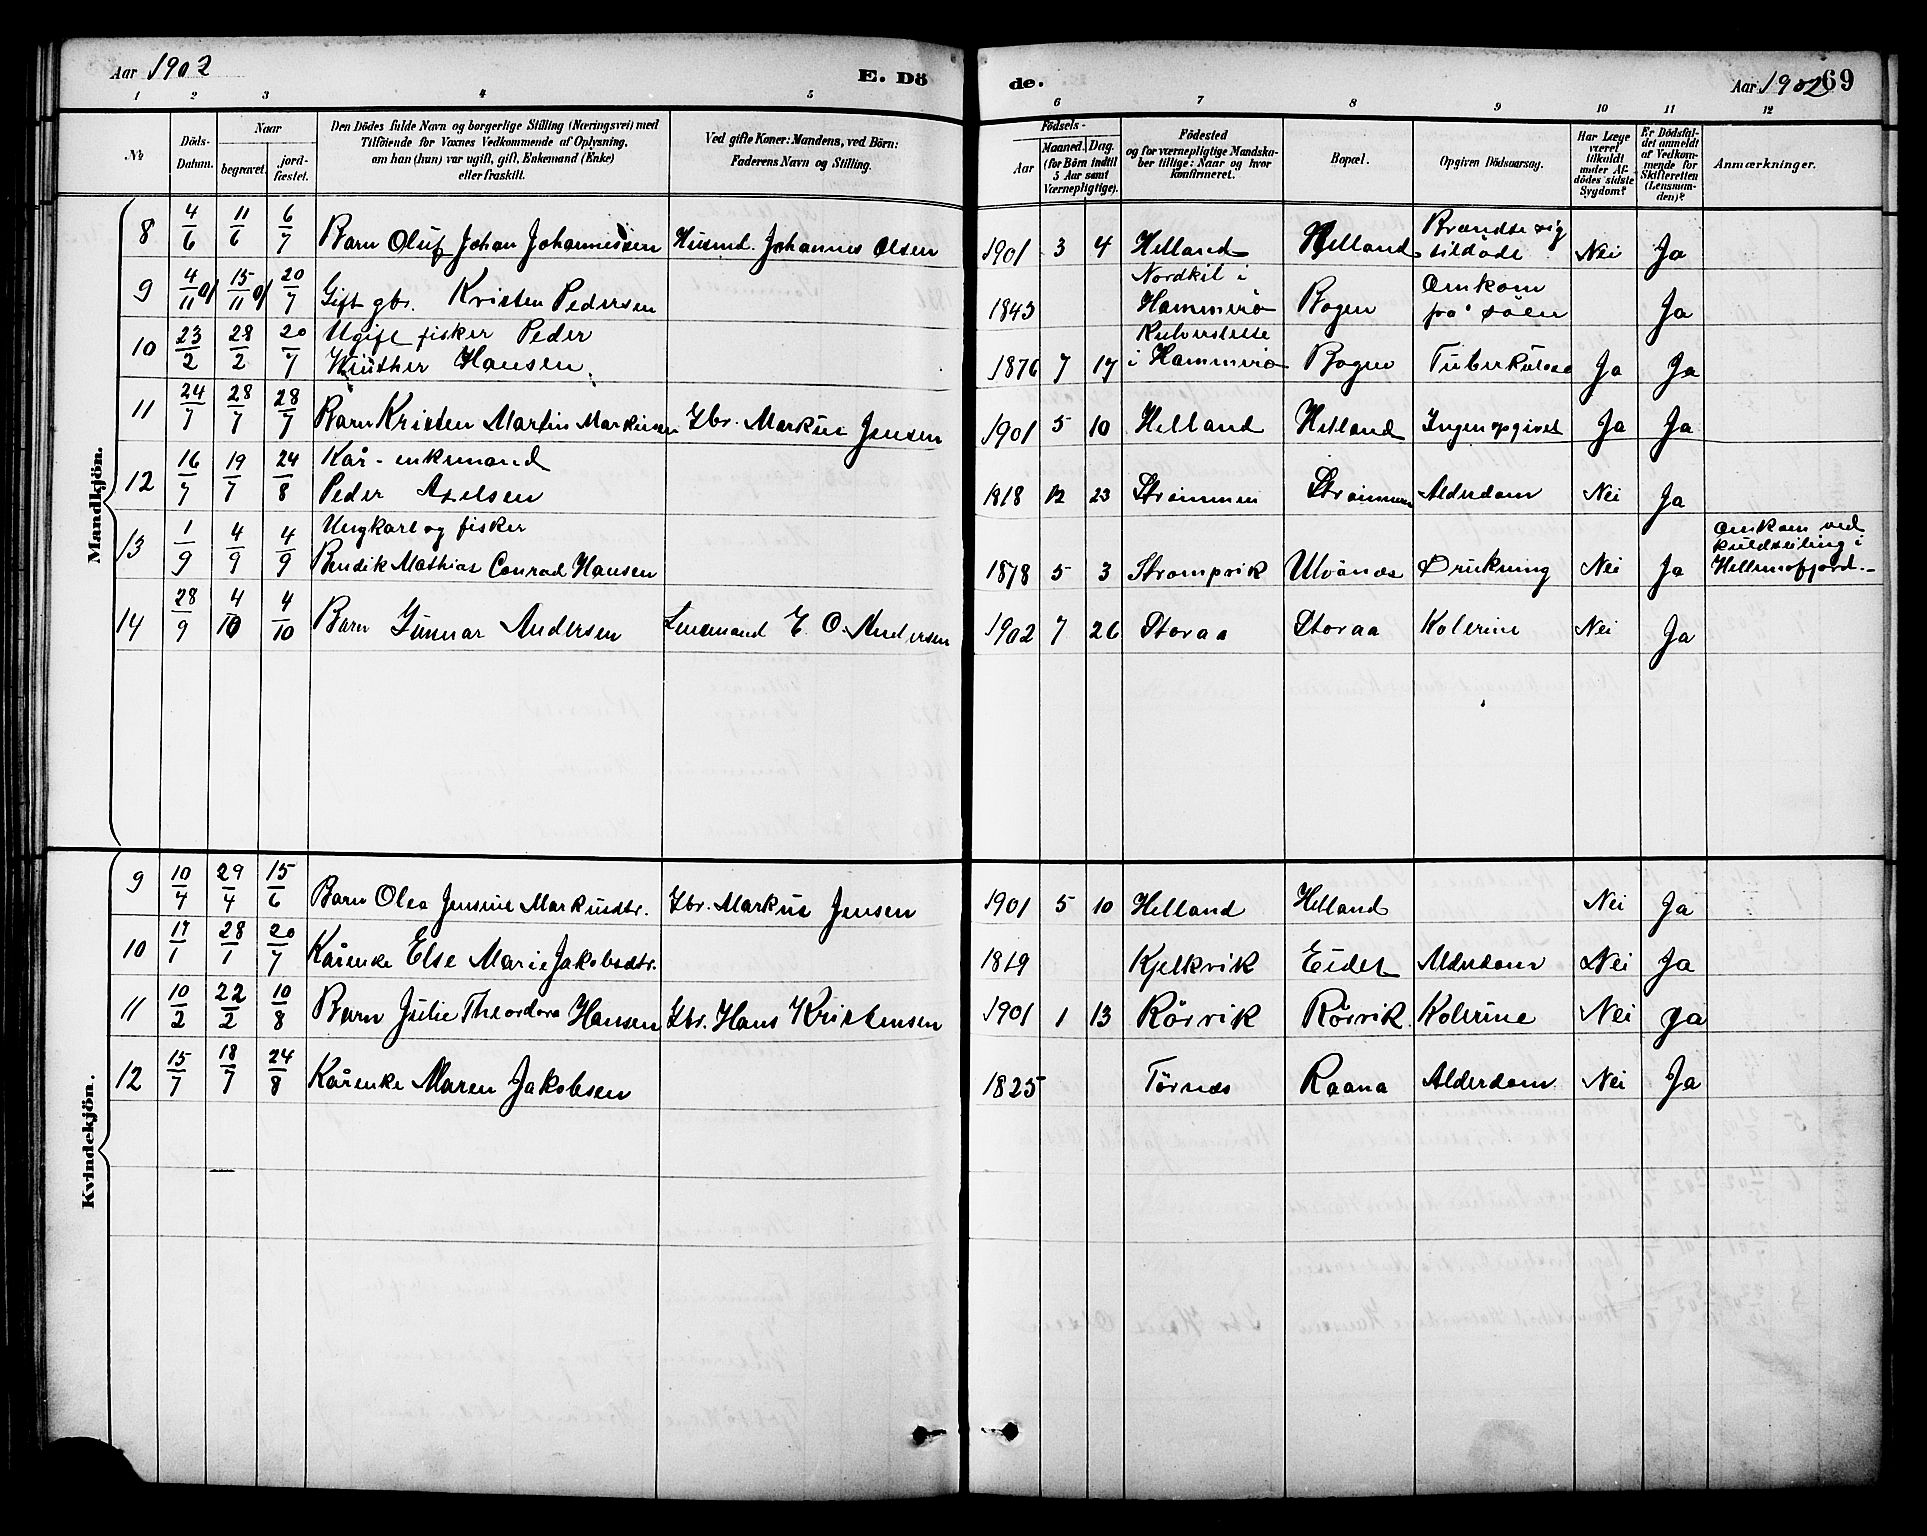 Aar 1902
E. Dö
de.
Aar 1902
69
1 2 3 4 5 6 7 8 9 10 11 12
No
Döds-
Datum.
Naar
begravet.
jord-
fæstet.
Den Dödes fulde Navn og borgerlige Stilling (Næringsvei) med
Tilföiende for Voxnes Vedkommende af Oplysning,
om han (hun) var ugift, gift, Enkemand (Enke)
eller fraskilt.
Ved gifte Koner: Mandens, ved Börn:
Faderens Navn og Stilling.
Födsels-
Aar
Maaned. Dag.
(for Börn indtil
5 Aar samt
Værnepligtige).
Födested
og for værnepligtige Mandska-
ber tillige: Naar og hvor
konfirmeret.
Bopæl.
Opgiven Dödsaarsag.
Har Læge
været
tilkaldt
under Af-
dödes sidste
Sygdom?
Er Dödsfal-
det anmeldt
af Vedkom-
mende for
Skifteretten
(Lensman-
den)?
Anmærkninger.
Mandkjön.
8 4/6 11/6 6/7 Barn Oluf Johan Johannessen Husmd. Johannes Olsen 1901 3 4 Helland Helland Brændte sig
tildöde Nei Ja
9 4/11 01 15/11 01 20/7 Gift gbr. Kristen Pedersen 1843 Nordkil i
Hammerö Bogen Omkom
på söen Ja
10 23/2 28/2 20/7 Ugift fisker Peder
Winther Hansen 1876 7 17
i Hammerö Bogen Tuberkulose Ja Ja
11 24/7 28/7 28/7 Barn Kristen Martin Markussen Gbr. Markus Jensen 1901 5 10 Helland Helland Ingen opgivet Ja Ja
12 16/7 19/7 24/8 Kår-enkemand
Peder Axelsen 1818 12 23 Strømmen Strømmen Alderdom Nei Ja
13 1/9 4/9 4/9 Ungkarl og fisker
Bendik Mathias Conrad Hansen 1878 5 3 Ulvsnes Drukning Nei Ja Omkom ved
kuldseiling i
Hellemofjord.-
14 28/9 4/10 4/10 Barn Gunnar Andersen Lensmand E. O. Andersen 1902 7 26 Storaa Storaa Kolerine Nei Ja
Kvindekjön.
9 10/4 29/4 15/6 Barn Olea Jensine Markusdtr. Gbr. Markus Jensen 1901 5 10 Helland Helland Nei Ja
10 17/1 28/1 20/7 Kårenke Else Marie Jakobsdtr. 1819 Kjelkvik Eidet Alderdom Nei Ja
11 10/2 22/2 10/8 Barn Julie Theordora Hansen Gbr. Hans Kristensen 1901 1 13 Rörvik Rörvik Kolerine Nei Ja
12 15/7 18/7 24/8 Kårenke Maren Jakobsen 1825 Tørnæs Raana Alderdom Nei Ja